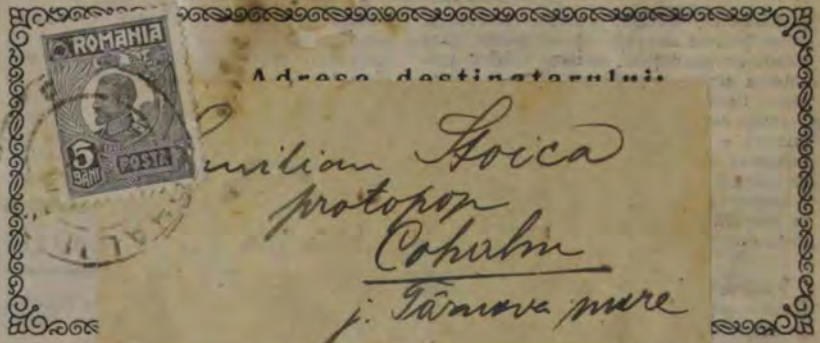 ROMANIA
5
BANI
POSTA
Adresa destinatarului:
Emilian Stoica
protopop
Cohalm
j. Târnava mare